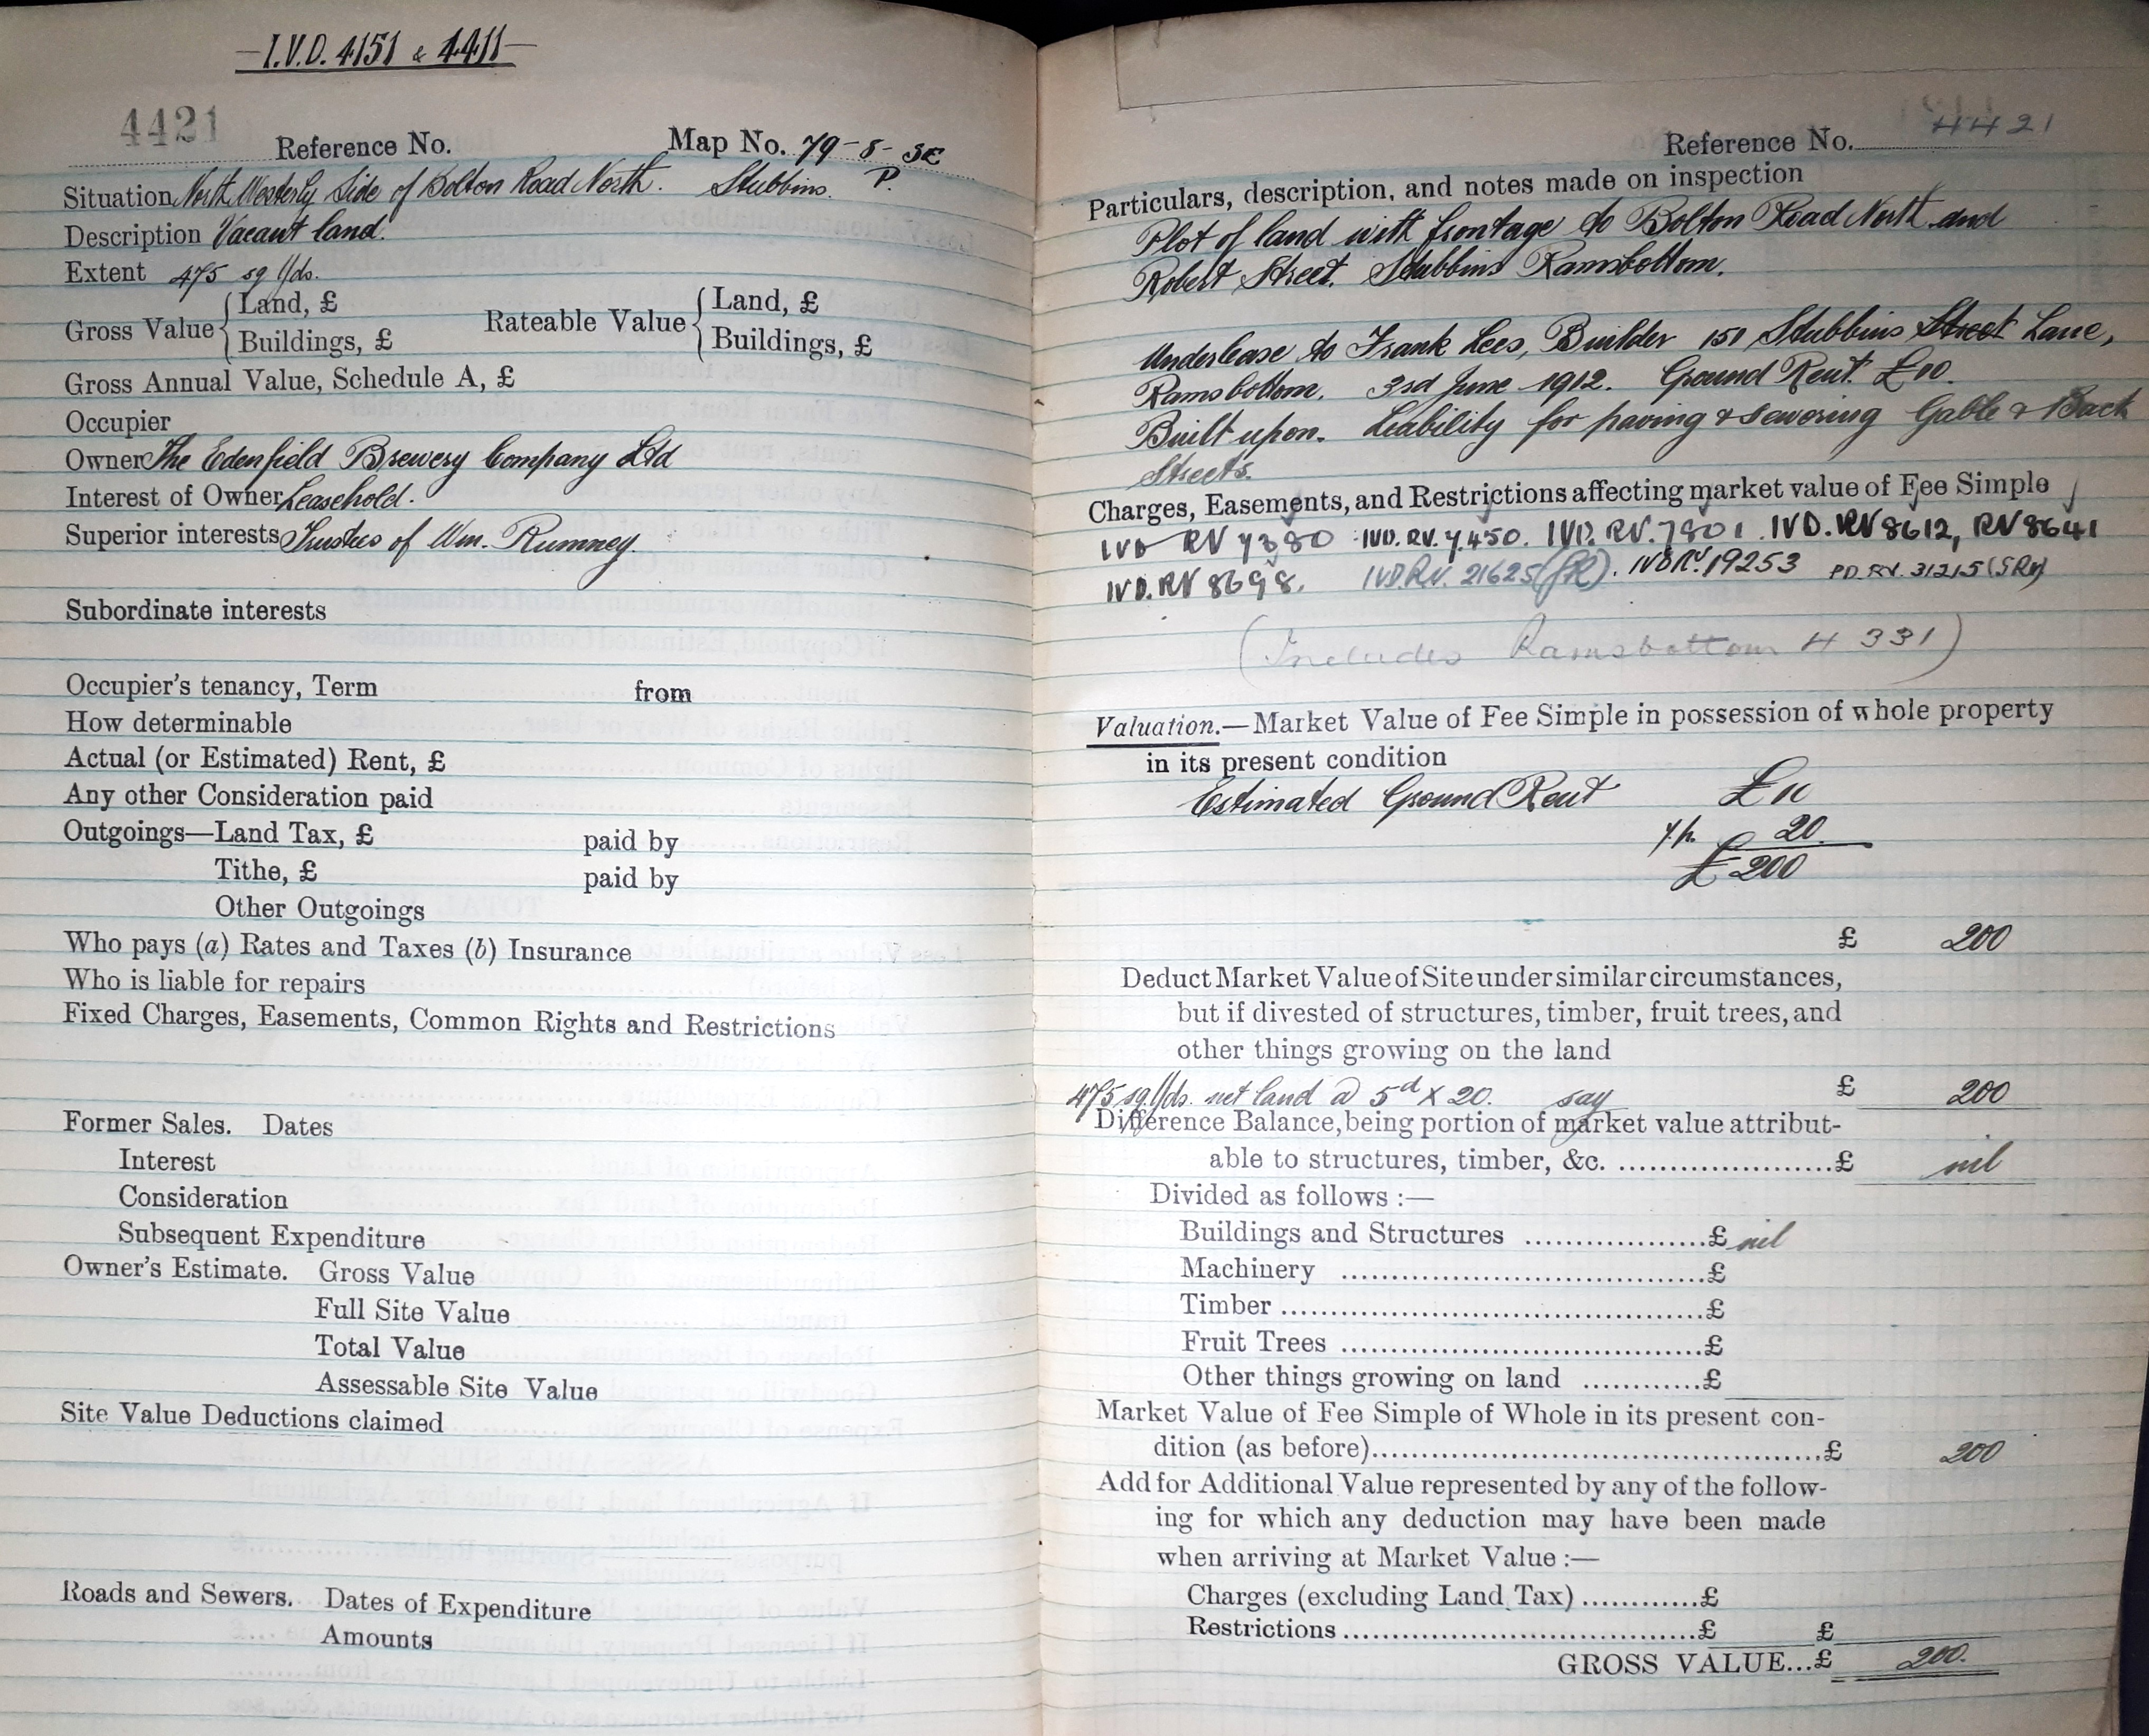 I.V.D. 4151 & 4411
4421
Reference No. Map No. 79-8-SE
Situation North Westerly Side of Bolton Road North. Stubbins. P.
Description Vacant land.
Extent 475 sq Yds.
Gross Value { Land, £ Rateable Value { Land, £
Buildings, £ Buildings, £
Gross Annual Value, Schedule A, £
Occupier
Owner The Edenfield Brewery Company Ltd
Interest of Owner Leasehold.
Superior interests Trustees of Wm. Rumney.
Subordinate interests
Occupier's tenancy, Term from
How determinable
Actual (or Estimated) Rent, £
Any other Consideration paid
Outgoings—Land Tax, £ paid by
Tithe, £ paid by
Other Outgoings
Who pays (a) Rates and Taxes (b) Insurance
Who is liable for repairs
Fixed Charges, Easements, Common Rights and Restrictions
Former Sales. Dates
Interest
Consideration
Subsequent Expenditure
Owner's Estimate. Gross Value
Full Site Value
Total Value
Assessable Site Value
Site Value Deductions claimed
Roads and Sewers. Dates of Expenditure
Amounts
Reference No. 4421
Particulars, description, and notes made on inspection
Plot of land with frontage to Bolton Road North and
Robert Street. Stubbins Ramsbottom.
Underlease to Frank Lees, Builder 151 Stubbins Street Lane,
Ramsbottom. 3rd June 1912. Ground Rent. £10.
Built upon. Liability for paving & sewering Gable & Back
Streets.
Charges, Easements, and Restrictions affecting market value of Fee Simple
IVD RV 7380 IVD. RV. 7450. IVD. RV. 7801. IVD. RV 8612, RV 8641
IVD. RV 8698. IVD.RV. 21625 (GR). IVD RV. 19253 PD. RV. 31215 (SRH)
(Includes Ramsbottom 4331)
Valuation.—Market Value of Fee Simple in possession of whole property
in its present condition
Estimated Ground Rent £10
y.p. 20
£200
£ 200
Deduct Market Value of Site under similar circumstances,
but if divested of structures, timber, fruit trees, and
other things growing on the land
475 sq. Yds. net land @ 5d X 20. say £ 200
Difference Balance, being portion of market value attribut-
able to structures, timber, &c. ........................£ nil
Divided as follows :—
Buildings and Structures ...................£ nil
Machinery .......................................£
Timber .............................................£
Fruit Trees .......................................£
Other things growing on land ............£
Market Value of Fee Simple of Whole in its present con-
dition (as before)................................................£ 200
Add for Additional Value represented by any of the follow-
ing for which any deduction may have been made
when arriving at Market Value :—
Charges (excluding Land Tax) ............£
Restrictions .....................................£ £
GROSS VALUE...£ 200.